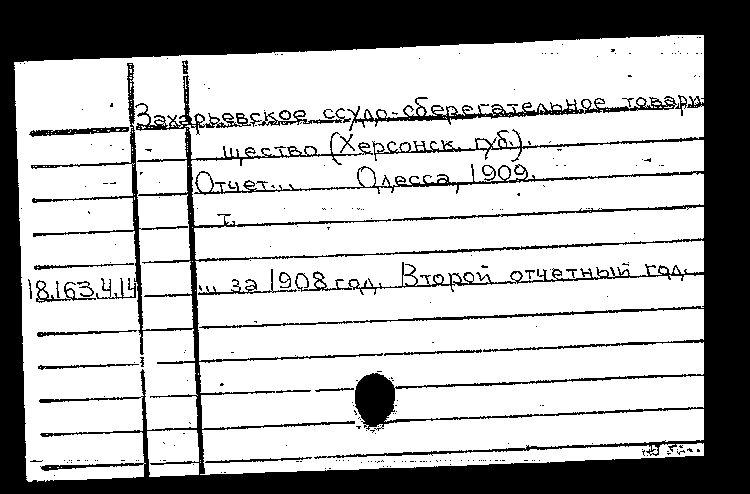 Захарьевское ссудо-сберегательное товари
щество (Херсонск. губ.).
Отчет... Одесса, 1909.
т.
18.163.4.14 ... за 1908 год. Второй отчетный год.